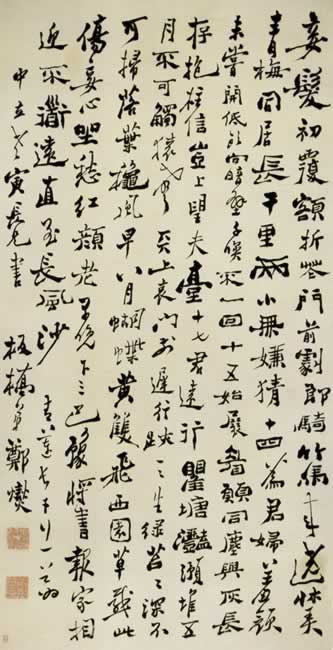 妾髮初覆額折花門前劇郎騎竹馬來遶牀弄
青梅同居長干里兩小無嫌猜十四為君婦羞顏
未嘗開低頭向暗壁千喚不一回十五始展眉願同塵與灰長
存抱柱信豈上望夫臺十七君遠行瞿塘灩澦堆五
月不可觸猿聲天上哀門前遲行跡一一生綠苔苔深不
可掃落葉秋風早八月蝴蝶黃雙飛西園草感此
傷妾心坐愁紅顏老早晚下三巴預將書報家相
迎不道遠直至長風沙 青蓮長干行一首為
中立老寅長兄書
板橋弟鄭燮